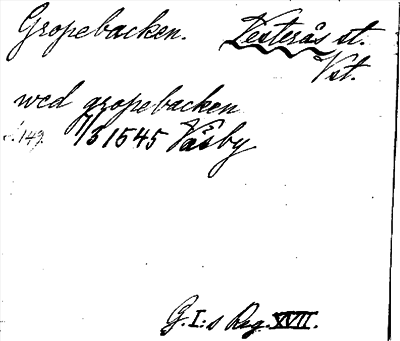 Gropebacken. Västerås st.
Vst.
wed gropebacken
s. 149. 7/3 1545 Väsby
G. I:s Reg. XVII.